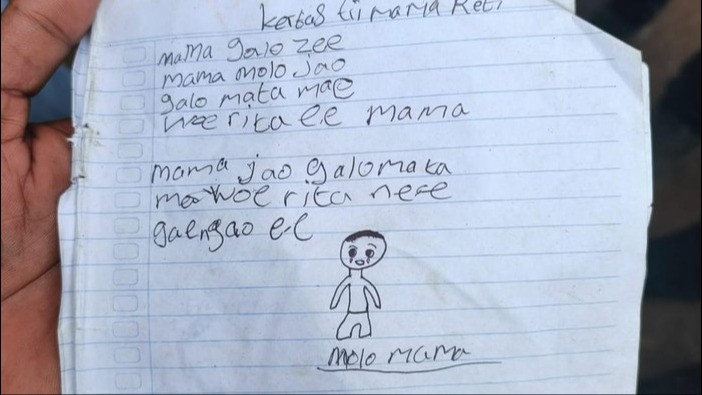 kertas tii mama Reti
mama galo zee
mama molo Jao
galo mata mae
woe rita ee mama
mama jao galo mata
mae woe rita ne e
gaengao ee
molo mama